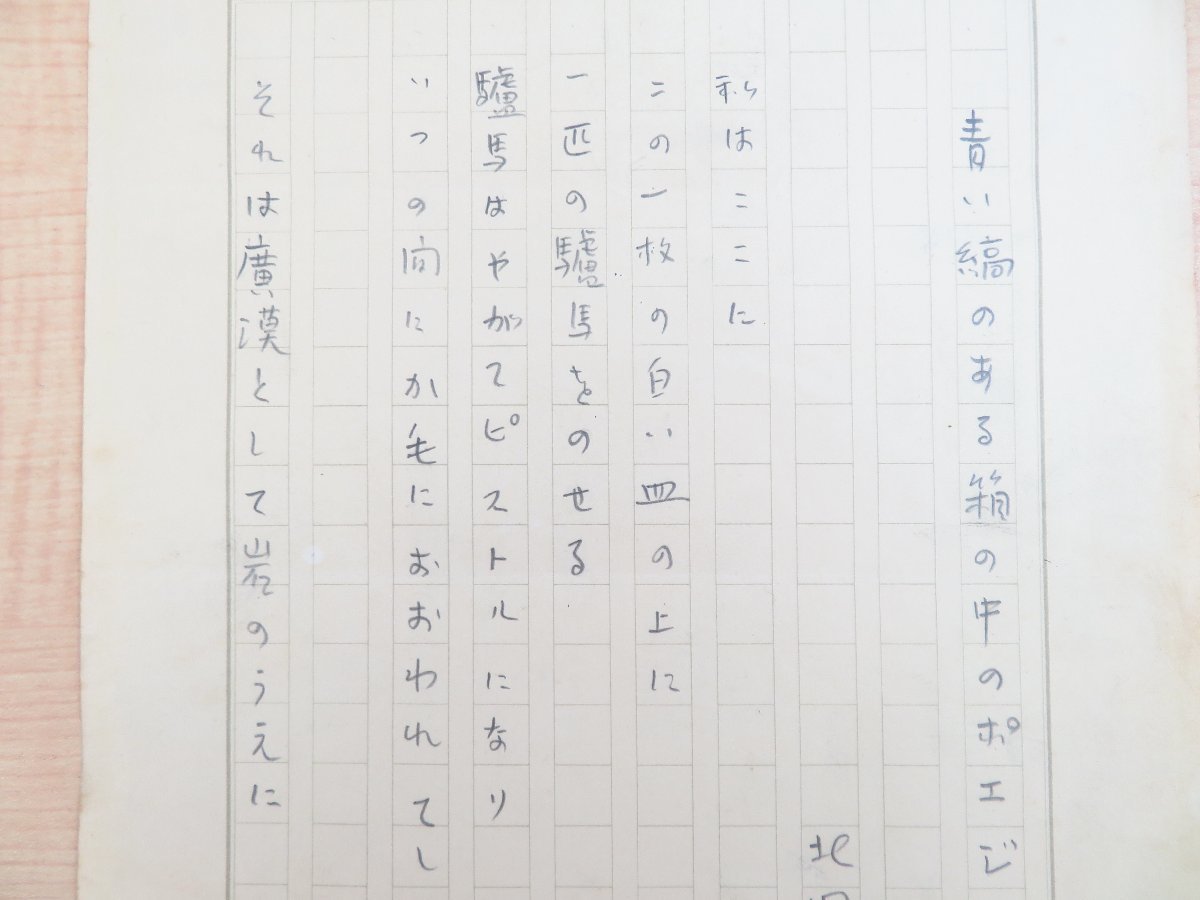 青い縞のある箱の中のポエジ
北
私はここに
この一枚の白い皿の上に
一匹の驢馬をのせる
驢馬はやがてピストルになり
いつの間にか毛におおわれてし
それは廣漠として岩のうえに